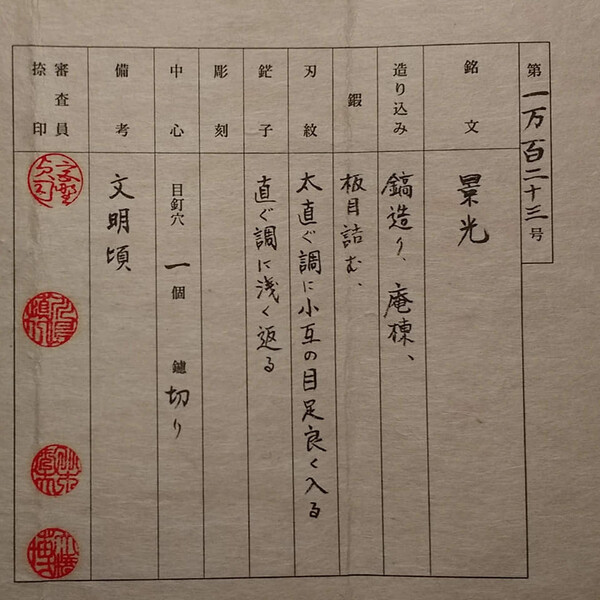 第一万百二十三号
銘文 景光
造り込み 鎬造り、庵棟、
鍜 板目詰む、
刃紋 太直ぐ調に小互の目足良く入る
鋩子 直ぐ調に浅く返る
彫刻
中心 目釘穴 一個 鑢 切り
備考 文明頃
審査員
捺印